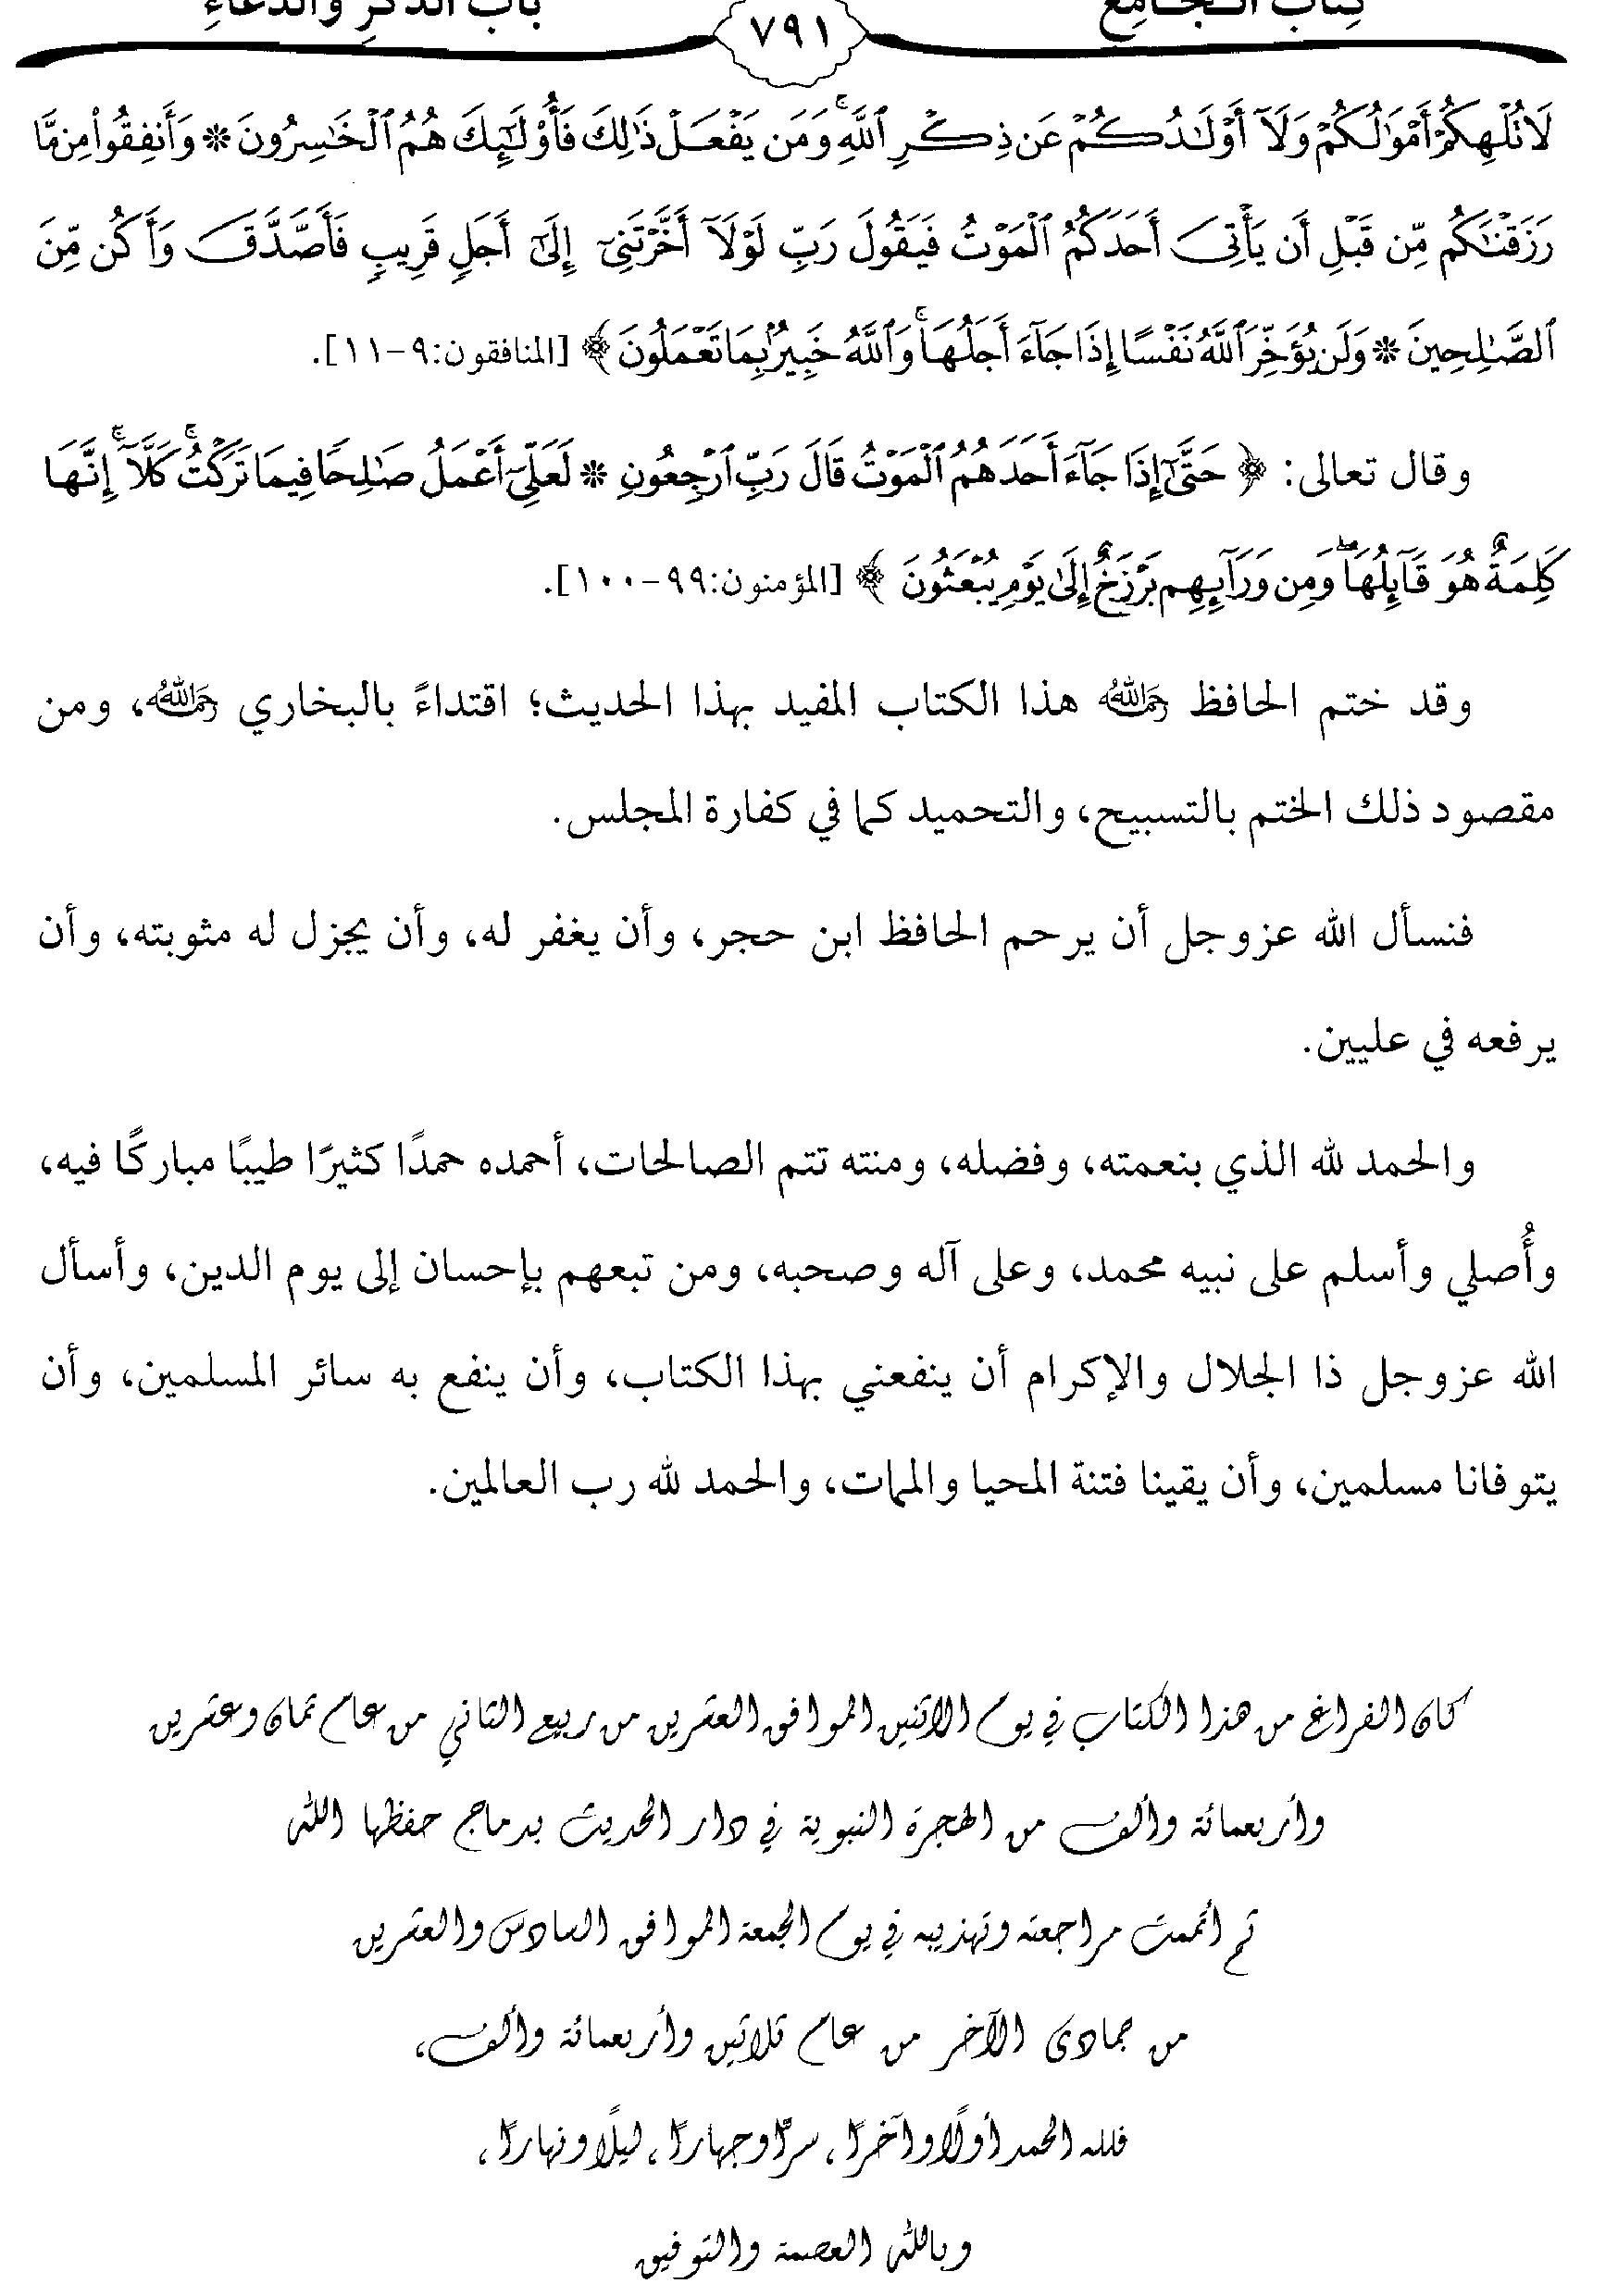 كتاب الجامع ٧٩١ باب الذكر والدعاء
لَا تُلْهِكُمْ أَمْوَٰلُكُمْ وَلَآ أَوْلَٰدُكُمْ عَن ذِكْرِ ٱللَّهِ ۚ وَمَن يَفْعَلْ ذَٰلِكَ فَأُو۟لَٰٓئِكَ هُمُ ٱلْخَٰسِرُونَ * وَأَنفِقُوا۟ مِن مَّا
رَزَقْنَٰكُم مِّن قَبْلِ أَن يَأْتِىَ أَحَدَكُمُ ٱلْمَوْتُ فَيَقُولَ رَبِّ لَوْلَآ أَخَّرْتَنِىٓ إِلَىٰٓ أَجَلٍ قَرِيبٍ فَأَصَّدَّقَ وَأَكُن مِّنَ
ٱلصَّٰلِحِينَ * وَلَن يُؤَخِّرَ ٱللَّهُ نَفْسًا إِذَا جَآءَ أَجَلُهَا ۚ وَٱللَّهُ خَبِيرٌۢ بِمَا تَعْمَلُونَ ﴾ [المنافقون:٩-١١].
وقال تعالى: ﴿ حَتَّىٰٓ إِذَا جَآءَ أَحَدَهُمُ ٱلْمَوْتُ قَالَ رَبِّ ٱرْجِعُونِ * لَعَلِّىٓ أَعْمَلُ صَٰلِحًا فِيمَا تَرَكْتُ ۚ كَلَّآ ۚ إِنَّهَا
كَلِمَةٌ هُوَ قَآئِلُهَا ۖ وَمِن وَرَآئِهِم بَرْزَخٌ إِلَىٰ يَوْمِ يُبْعَثُونَ ﴾ [المؤمنون:٩٩-١٠٠].
وقد ختم الحافظ رحمه الله هذا الكتاب المفيد بهذا الحديث؛ اقتداءً بالبخاري رحمه الله، ومن
مقصود ذلك الختم بالتسبيح، والتحميد كما في كفارة المجلس.
فنسأل الله عزوجل أن يرحم الحافظ ابن حجر، وأن يغفر له، وأن يجزل له مثوبته، وأن
يرفعه في عليين.
والحمد لله الذي بنعمته، وفضله، ومنته تتم الصالحات، أحمده حمدًا كثيرًا طيبًا مباركًا فيه،
وأُصلي وأسلم على نبيه محمد، وعلى آله وصحبه، ومن تبعهم بإحسان إلى يوم الدين، وأسأل
الله عزوجل ذا الجلال والإكرام أن ينفعني بهذا الكتاب، وأن ينفع به سائر المسلمين، وأن
يتوفانا مسلمين، وأن يقينا فتنة المحيا والممات، والحمد لله رب العالمين.
كان الفراغ من هذا الكتاب في يوم الاثنين الموافق العشرين من ربيع الثاني من عام ثمان وعشرين
وأربعمائة وألف من الهجرة النبوية في دار الحديث بدماج حفظها الله
ثم أتممت مراجعته وتهذيبه في يوم الجمعة الموافق السادس والعشرين
من جمادى الآخر من عام ثلاثين وأربعمائة وألف،
فلله الحمد أولًا وآخرًا، سرًّا وجهارًا، ليلًا ونهارًا،
وبالله العصمة والتوفيق